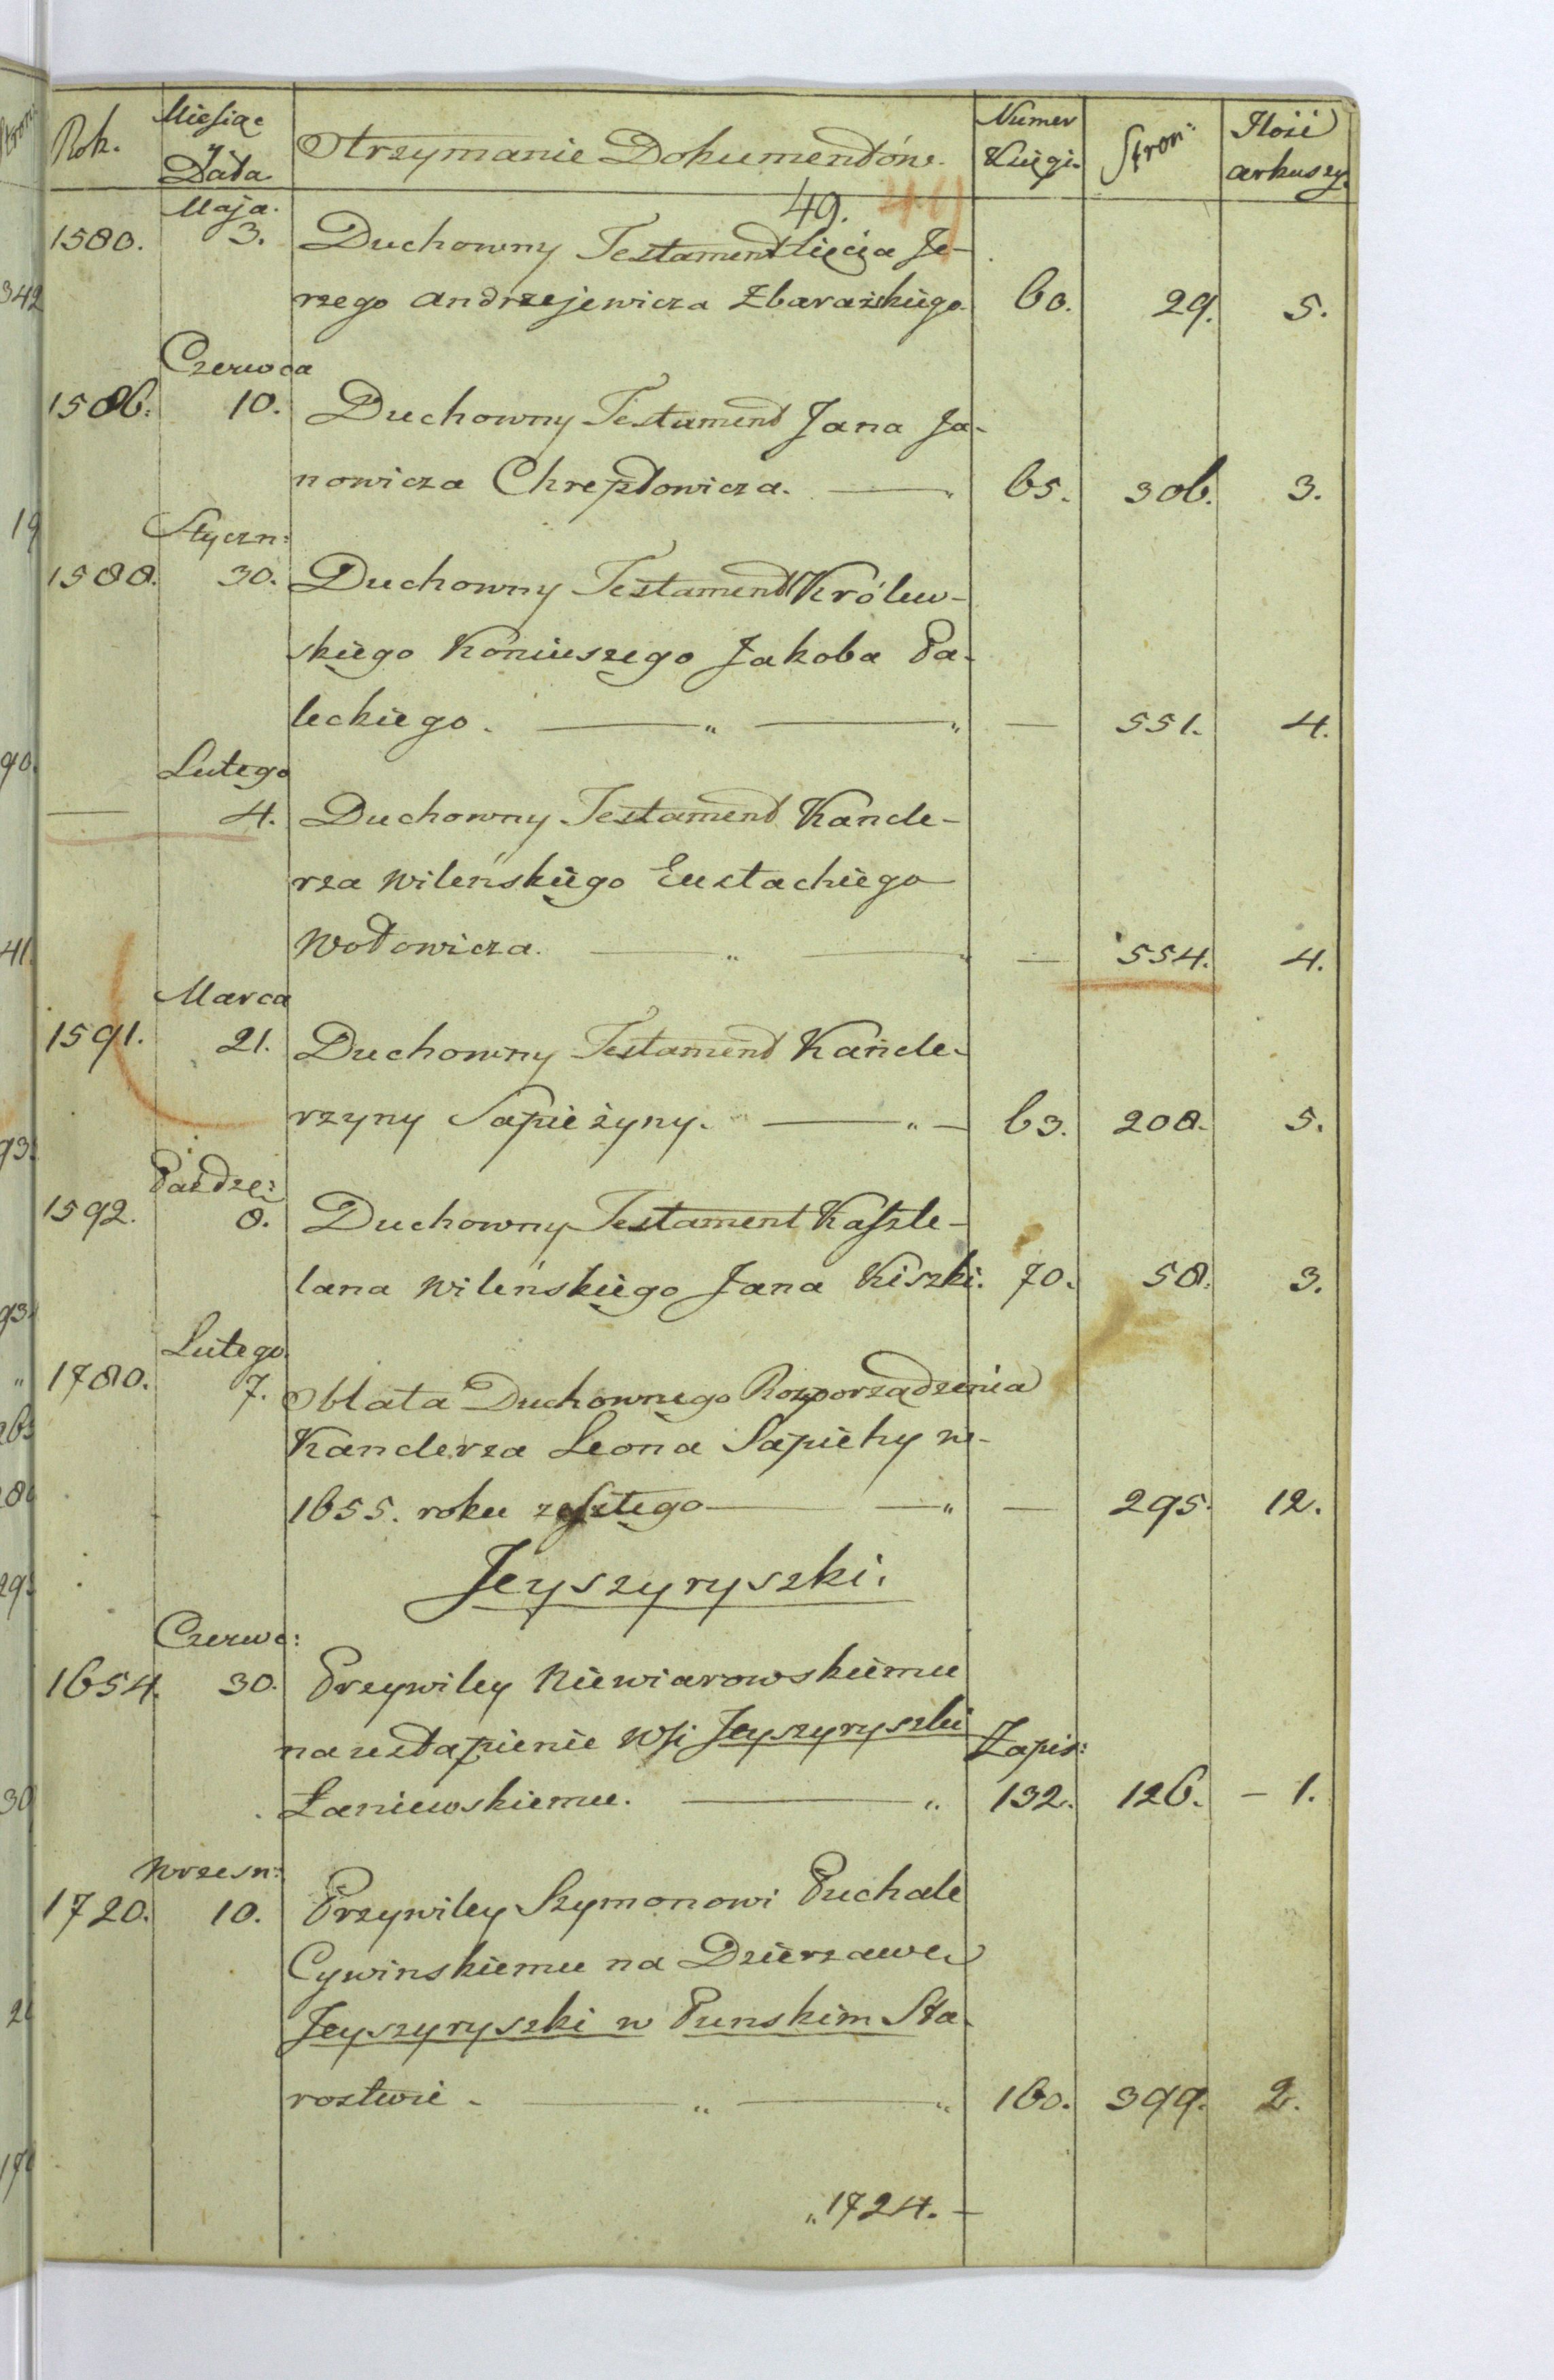 Rok. Miesiąc y Data Otrzymanie Dokumentów. Numer Księgi. Stron: Ilość arkuszy.
49. 49
Maja.
1580. 3. Duchowny Testament Xięcia Je-
rzego Andrzejewicza Zbarażskiego. 60. 29. 5.
Czerwca
1586. 10. Duchowny Testament Jana Ja-
nowicza Chreptowicza. — " 65. 306. 3.
Styczn:
1588. 30. Duchowny Testament Królew-
skiego Koniuszego Jakoba Pa-
leckiego. — " — " — 551. 4.
Lutego
— 4. Duchowny Testament Kancle-
rza Wileńskiego Eustachiego
Wołowicza. — " — " — 554. 4.
Marca
1591. 21. Duchowny Testament Kancle-
rzyny Sapieżyny. — " — 63. 208. 5.
Paźdze:
1592. 8. Duchowny Testament Kaszte-
lana Wileńskiego Jana Kiszki. 70. 58. 3.
Lutego
1780. 7. Oblata Duchownego Rozporządzenia
Kanclerza Leona Sapiehy w-
1655. roku zeszłego — — " — 295. 12.
Jeyszyryszki.
Czerwc:
1654. 30. Przywiley Niewiarowskiemu
na ustąpienie Wsi Jeyszyryszki Zapis:
Łaniewskiemu. — " 132. 126. — 1.
Wrzesn:
1720. 10. Przywiley Szymonowi Puchale
Cywinskiemu na Dzierzawę
Jeyszyryszki w Punskim Sta-
rostwie. — " — " 160. 399. 2.
" 1724. —